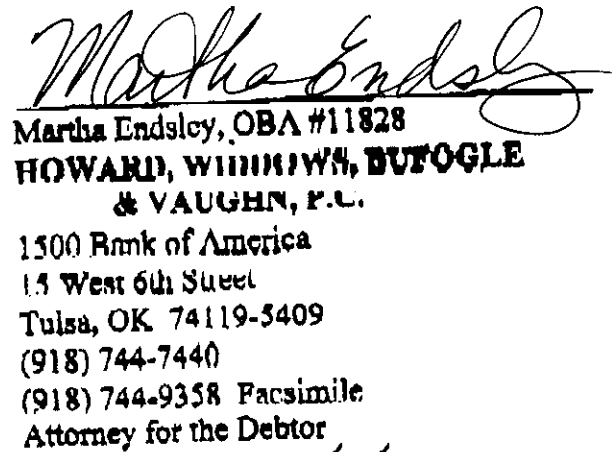 Martha Endsley
Martha Endsley, OBA #11828
HOWARD, WIDDOWS, BUFOGLE
& VAUGHN, P.C.
1500 Bank of America
15 West 6th Street
Tulsa, OK 74119-5409
(918) 744-7440
(918) 744-9358 Facsimile
Attorney for the Debtor